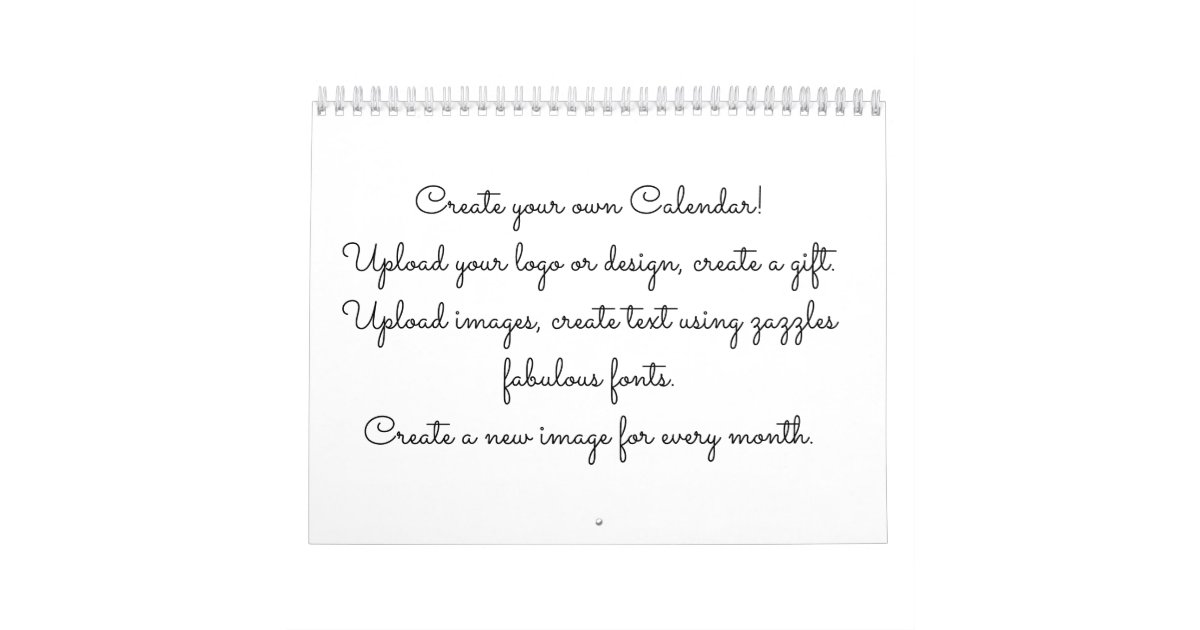 Create your own Calendar!
Upload your logo or design, create a gift.
Upload images, create text using zazzles
fabulous fonts.
Create a new image for every month.